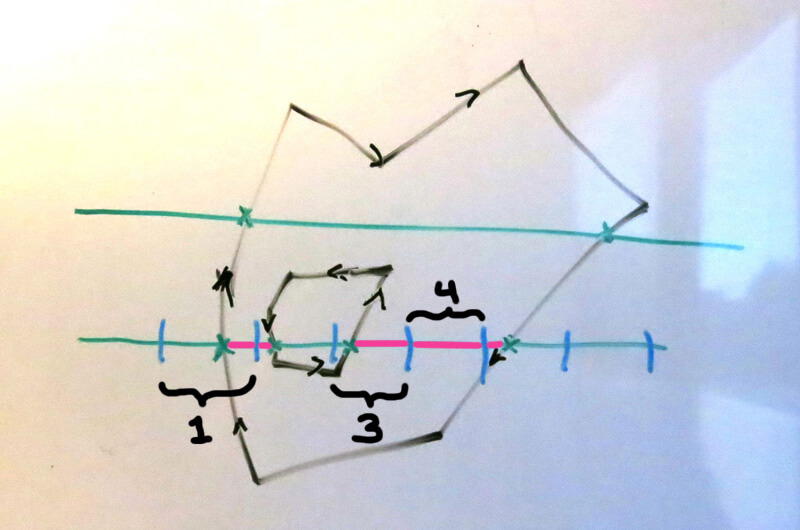 4
1
3